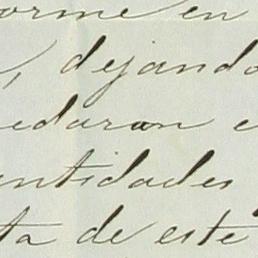 orme en
, dejando
edaron e
antidades
ta de este